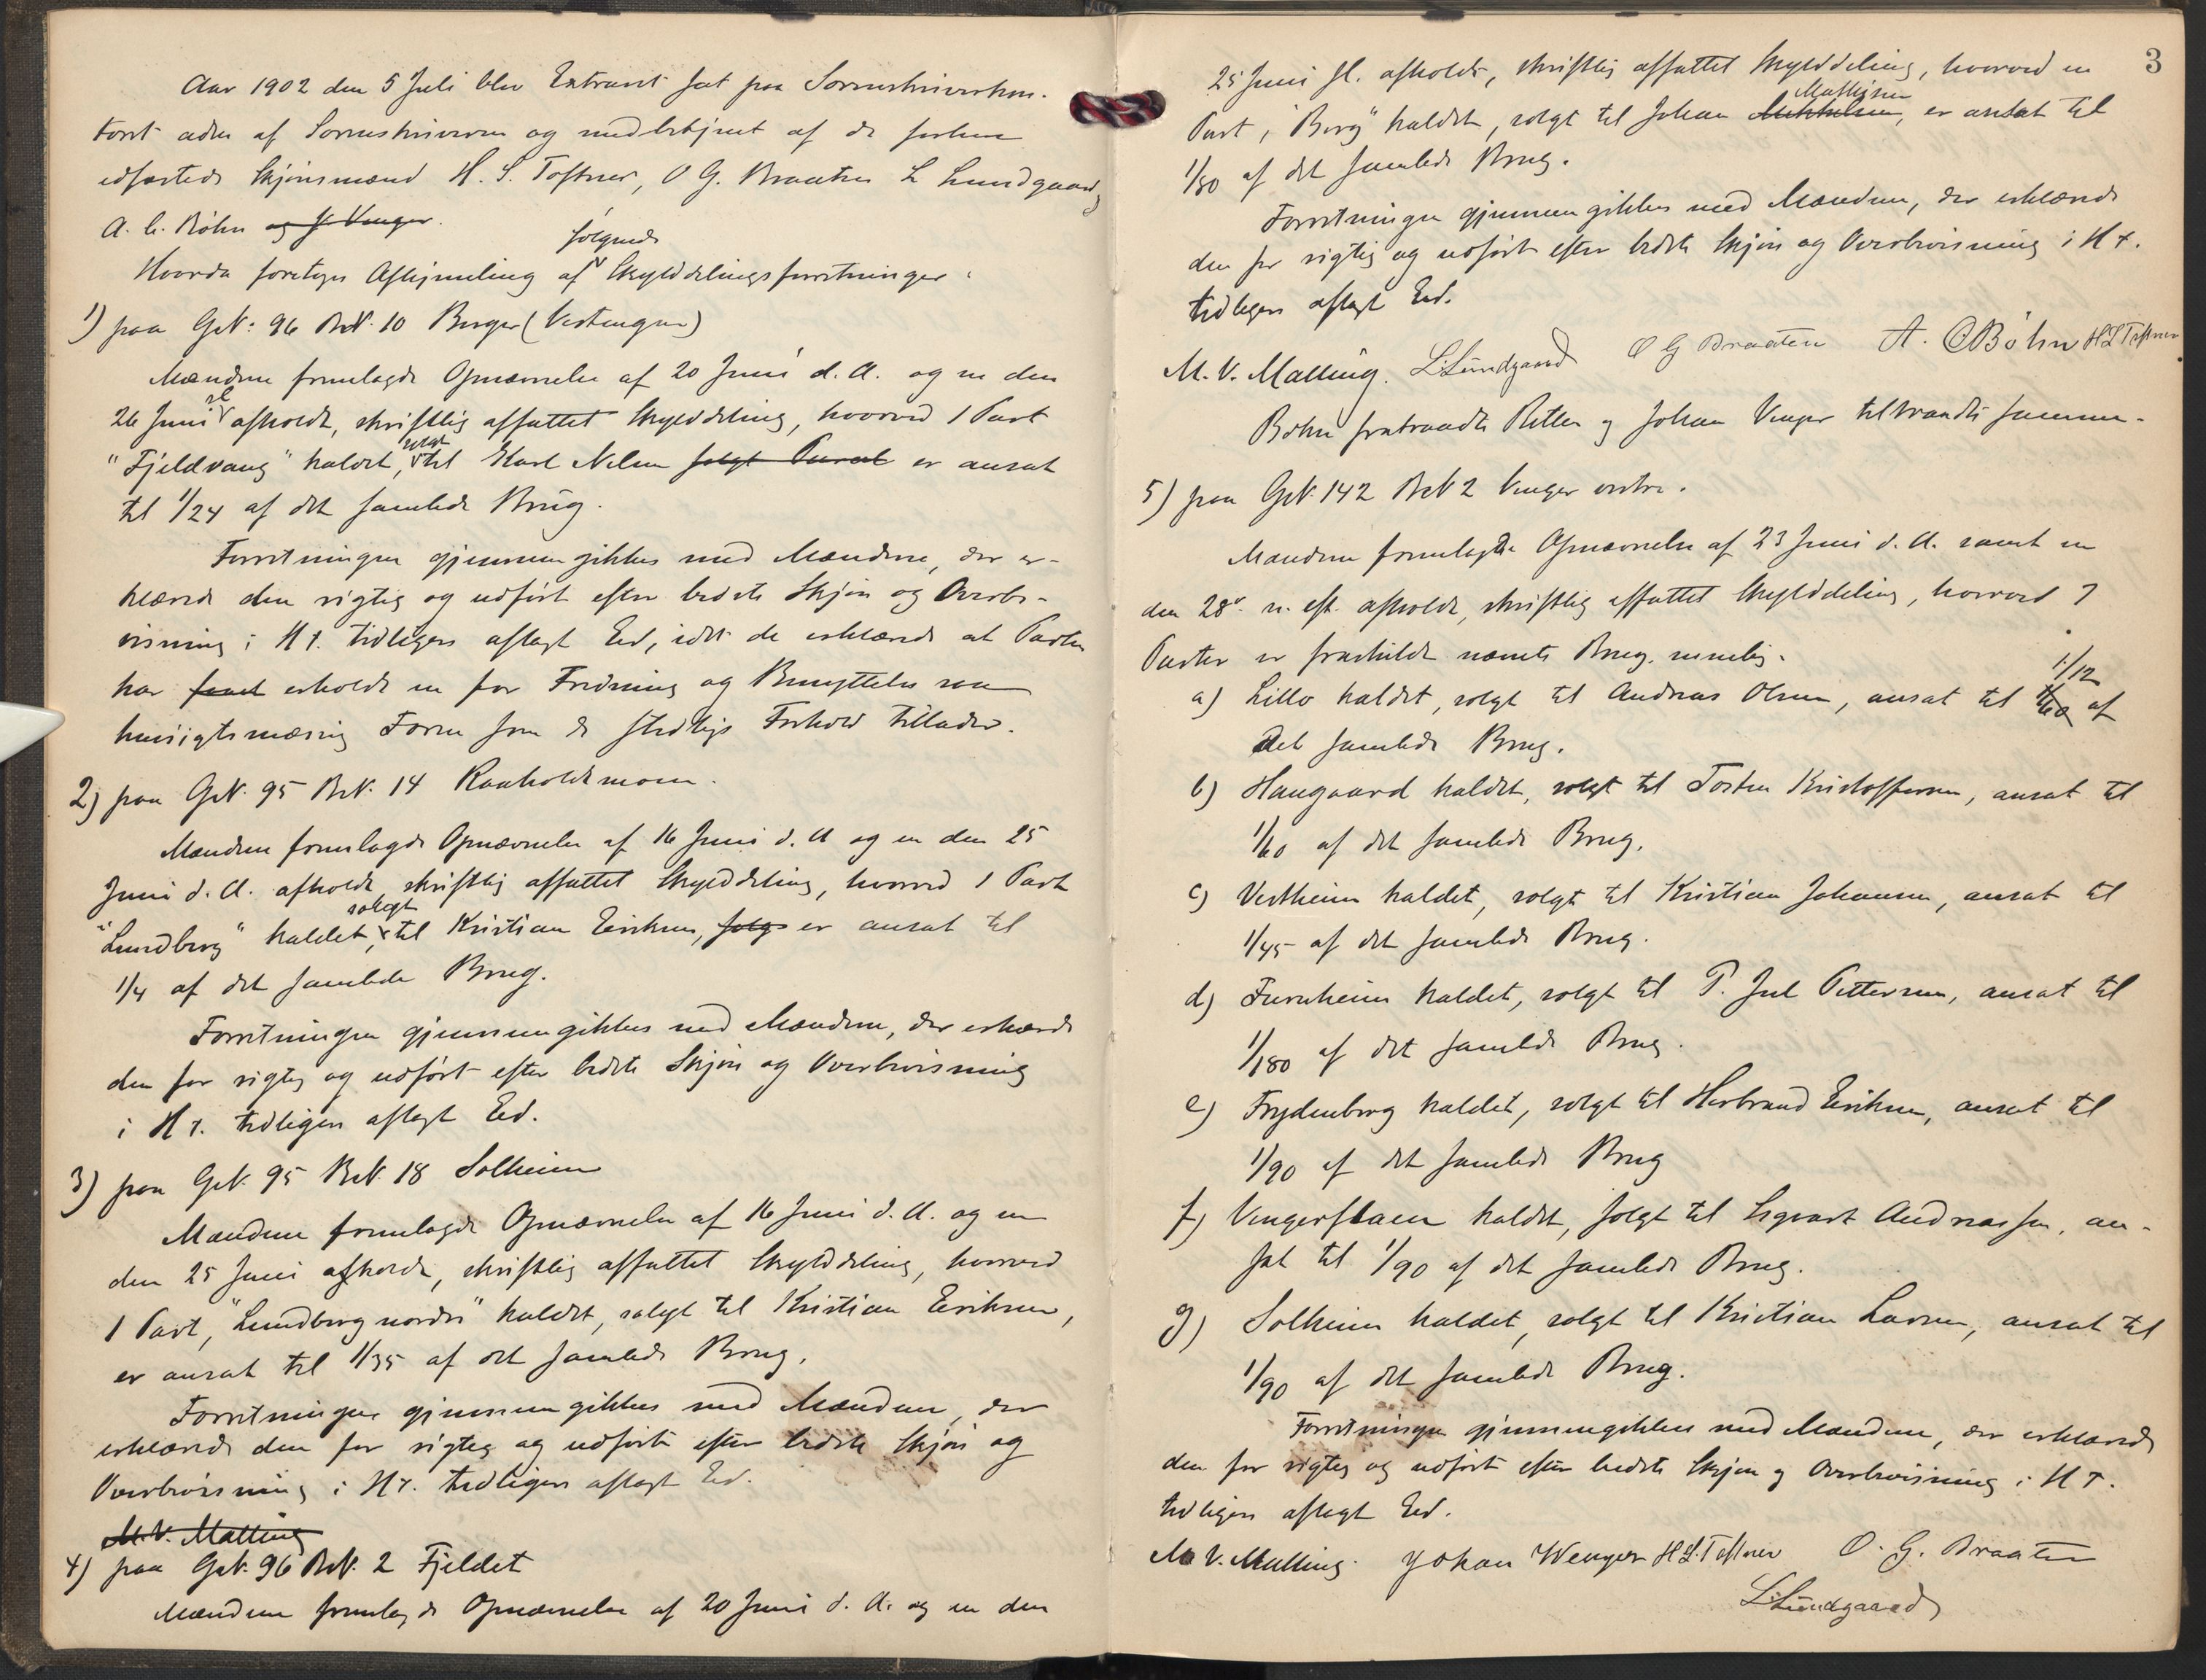 Aar 1902 den 5 Juli blev Extraret sat paa Sorenskriverkon-
toret adm af Sorenskriveren og medbetjent af de forhen
edfæstede Skjønsmænd H. S. Toftner, O G. Braaten L Lundgaard,
A. C. Bøhn og J. Venger.
Hvorda foretoges Afhjemling af følgende Skylddelingsforretninger:
1) paa GN: 96 BN. 10 Berger (Vestengen)
Mændene fremlagde Opnævnelse af 20 Juni d. A. og en den
26 Juni sl afholdt, skriftlig affattet Skylddeling, hvorved 1 Part
"Fjeldvang" kaldet, solgt til Karl Nilsen solgt er ansat
til 1/24 af det samlede Brug.
Forretningen gjennemgikkes med Mændene, der er-
klærede den rigtig og udført efter bedste Skjøn og Overbe-
visning i H t. tidligere aflagt Ed, idet de erklærede at Parten
har faaet erholdt en for Fredning og Benyttelse saa
hensigtsmæssig Form som de stedlige Forhold tillader.
2) paa GN. 95 BN. 14 Raaholdtmoen.
Mændene fremlagde Opnævnelse af 16 Juni d. A og en den 25
Juni d. A. afholdt, skriftlig affattet Skylddeling, hvorved 1 Part
"Lundberg" kaldet, solgt til Kristian Eriksen, solgt er ansat til
1/4 af det samlede Brug.
Forretningen gjennemgikkes med Mændene, der erklærede
den for rigtig og udført efter bedste Skjøn og Overbevisning
i H t. tidligere aflagt Ed.
3) paa GN. 95 BN. 18 Solheim
Mændene fremlagde Opnævnelse af 16 Juni d. A. og en
den 25 Juni afholdt, skriftlig affattet Skylddeling, hvorved
1 Part, "Lundberg nordre" kaldet, solgt til Kristian Eriksen,
er ansat til 1/35 af det samlede Brug.
Forretningen gjennemgikkes med Mændene, der
erklærede den for rigtig og udført efter bedste Skjøn og
Overbevisning i H t. tidligere aflagt Ed.
M. V. Malling
4) paa GN. 96 BN. 2 Fjeldet
Mændene fremlagde Opnævnelse af 20 Juni d. A. og en den
3
25 Juni sl. afholdt, skriftlig affattet Skylddeling, hvorved en
Part, "Berg" kaldet, solgt til Johan Mikkelsen Mathisen, er ansat til
1/80 af det samlede Brug.
Forretningen gjennemgikkes med Mændene, der erklærede
den for rigtig og udført efter bedste Skjøn og Overbevisning i H t.
tidligere aflagt Ed.
M. V. Malling. L. Lundgaard O G Braaten A. C Bøhn H S Toftner
Bøhn fratraadte Retten og Johan Venger tiltraadte samme.
5) paa GN. 142 BN 2 Venger vestre.
Mændene fremlagde Opnævnelse af 23 Juni d. A. samt en
den 28de n. eft. afholdt, skriftlig affattet Skylddeling, hvorved 7
Parter er fraskildt nævnte Brug, nemlig.
a) Lillo kaldet, solgt til Andreas Olsen, ansat til 1/12 af
det samlede Brug.
b) Haugaard kaldet, solgt til Torsten Kristoffersen, ansat til
1/60 af det samlede Brug.
c) Vestheim kaldet, solgt til Kristian Johansen, ansat til
1/45 af det samlede Brug.
d) Furuheim kaldet, solgt til P. Jul Pettersen, ansat til
1/180 af det samlede Brug.
e) Frydenberg kaldet, solgt til Herbrand Eriksen, ansat til
1/90 af det samlede Brug
f) Vengerflaen kaldet, solgt til Sigvart Andreassen, an-
sat til 1/90 af det samlede Brug.
g) Solheim kaldet, solgt til Kristian Larsen, ansat til
1/90 af det samlede Brug.
Forretningen gjennemgikkes med Mændene, der erklærede
den for rigtig og udført efter bedste Skjøn og Overbevisning i H t.
tidligere aflagt Ed.
M V. Malling. Johan Wenger H S. Toftner O. G. Braaten
L. Lundgaard